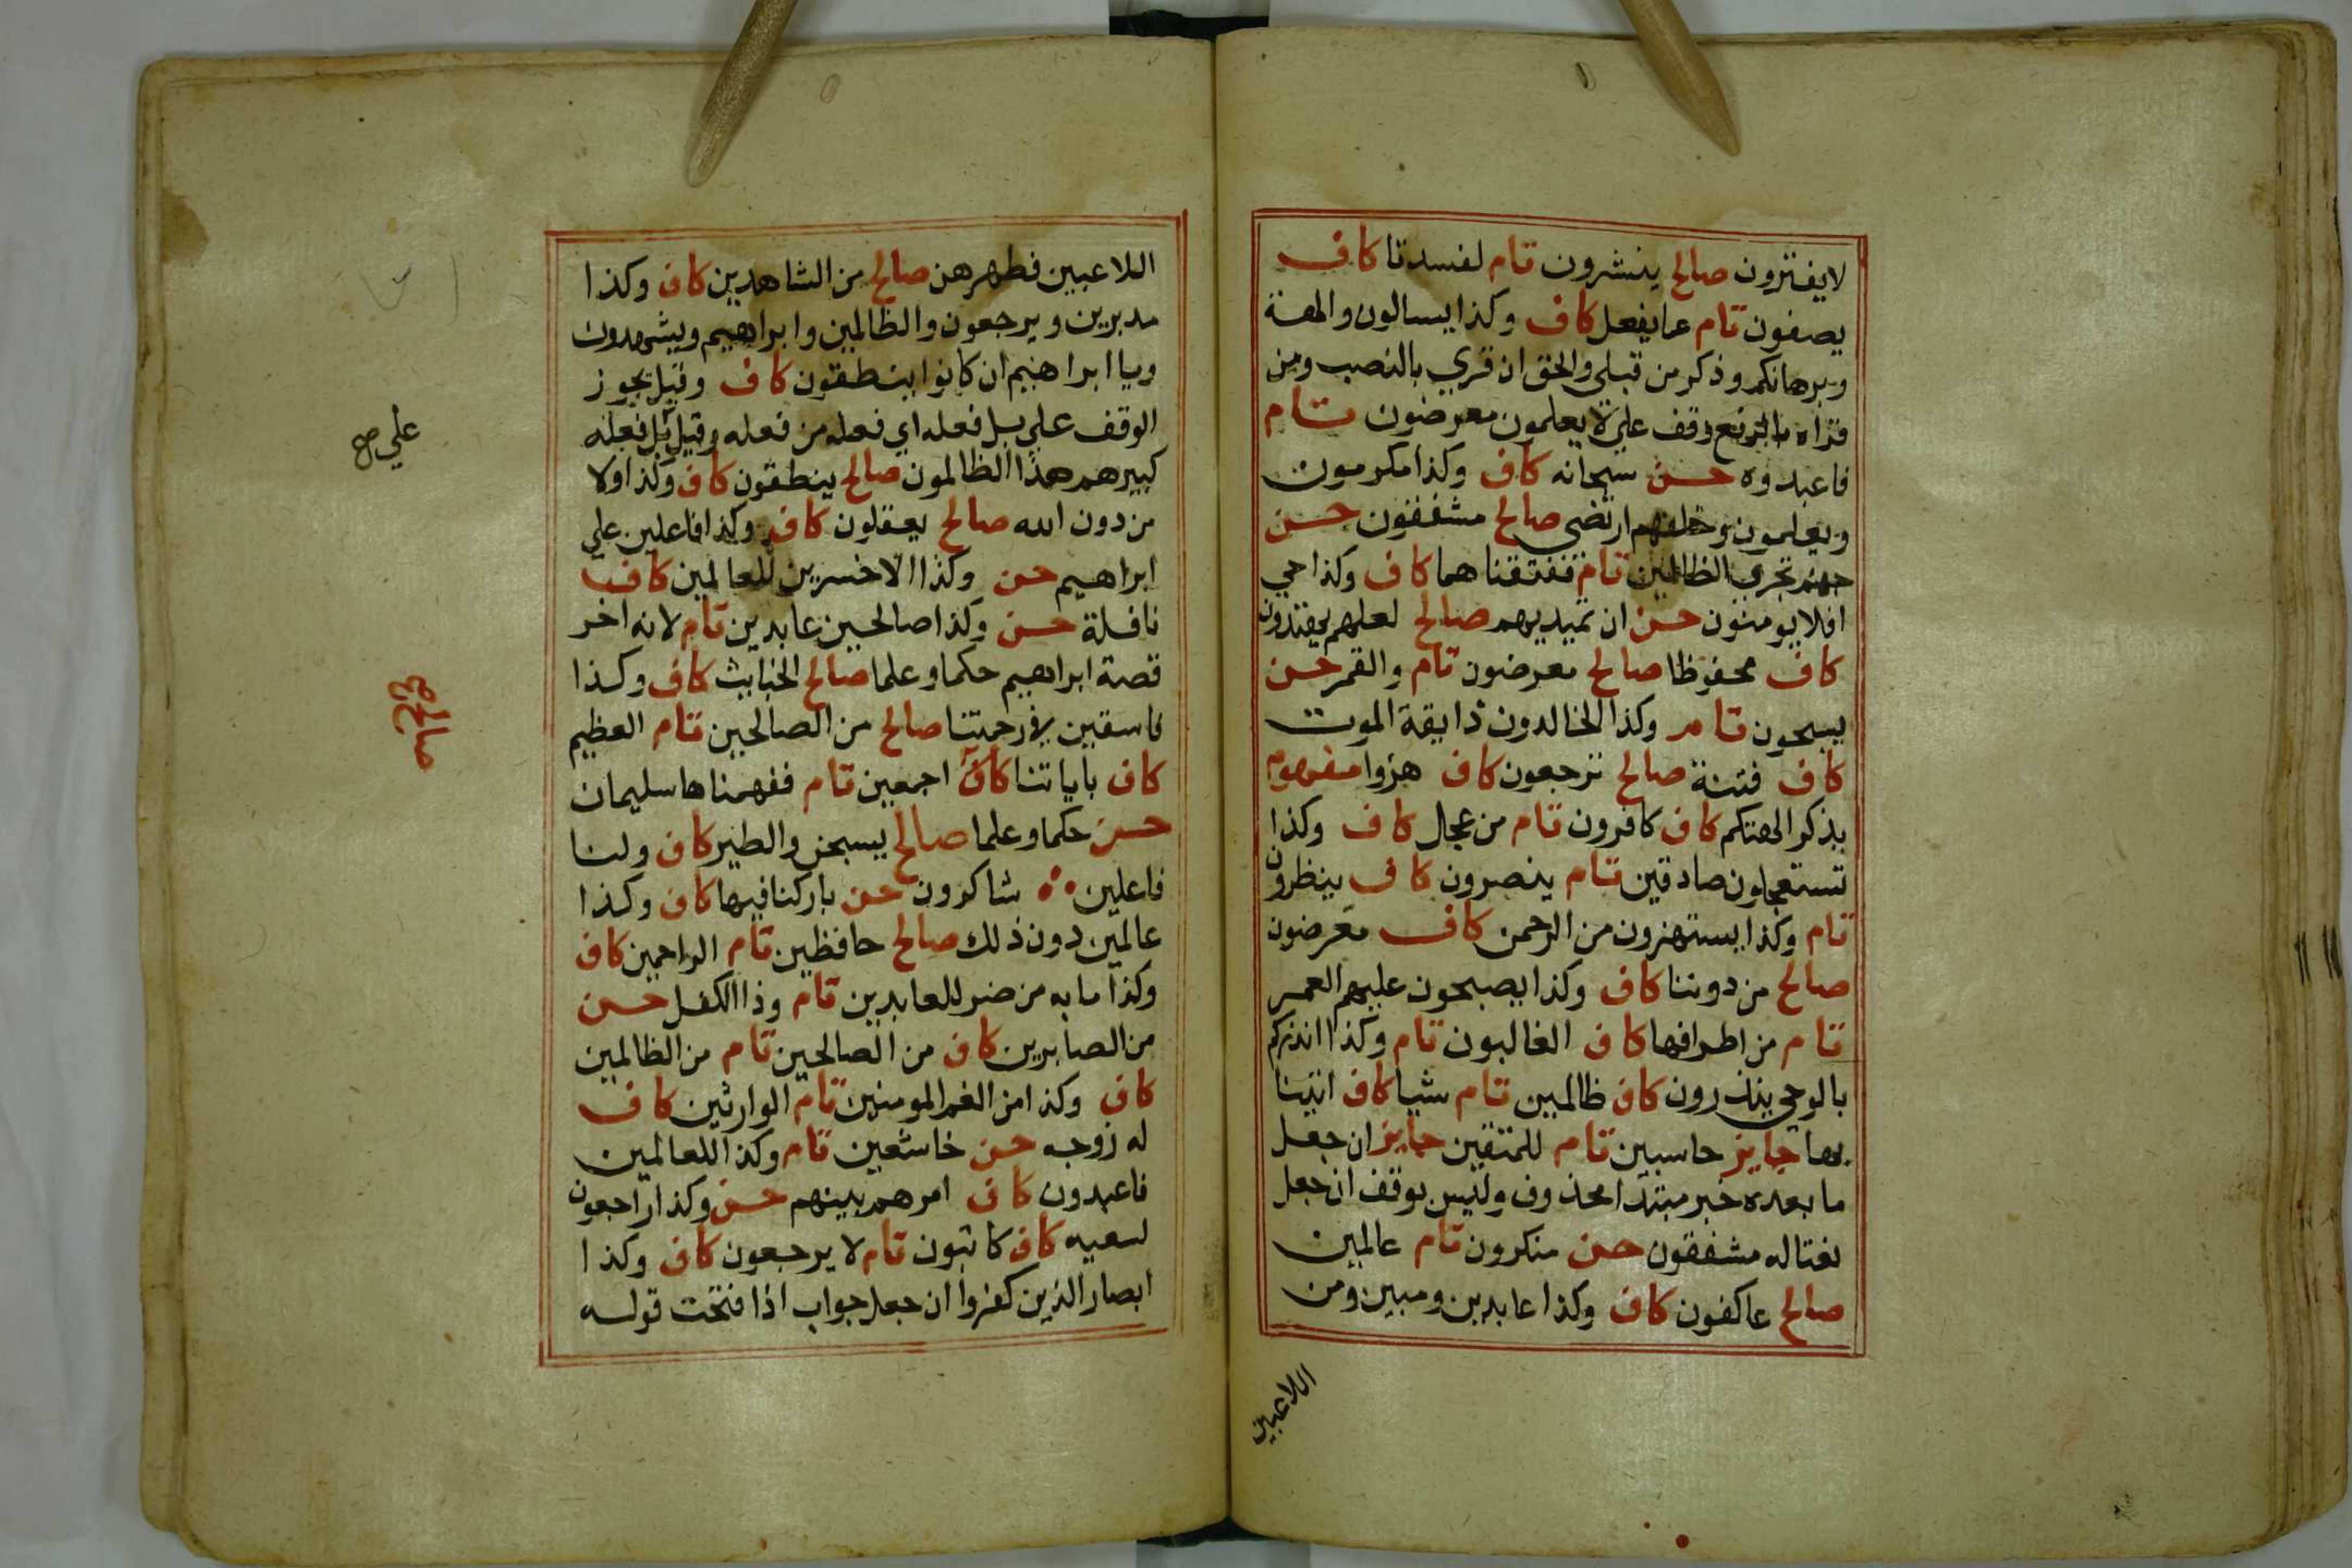 لايفترون صالح ينشرون تام لفسدتا كاف
يصفون تام عمايفعل كاف وكذا يسالون والهة
وبرهانكم وذكر من قبلي والحق ان قري بالنصب ومن
قراه بالرفع وقف علي لا يعلمون معرضون تام
فاعبدوه حسن سبحانه كاف وكذا مكرمون
ويعلمون وخلفهم ارتضي صالح مشفقون حسن
جهنم تجزي الظالمين تام ففتقناهما كاف وكذا حي
افلا يومنون حسن ان تميد بهم صالح لعلهم يهتدون
كاف محفوظا صالح معرضون تام والقمر حسن
يسبحون تام وكذا الخالدون ذايقة الموت
كاف فتنة صالح ترجعون كاف هزوا مفهوم
بذكر الهتكم كاف كافرون تام من عجل كاف وكذا
تستعجلون صادقين تام ينصرون كاف ينظرون
تام وكذا يستهزون من الرحمن كاف معرضون
صالح من دوننا كاف وكذا يصبحون عليهم العمر
تام من اطرافها كاف الغالبون تام وكذا انذركم
بالوحي ينذرون كاف ظالمين تام شيا كاف اتينا
بها جايز حاسبين تام للمتقين جايز ان جعل
ما بعده خبر مبتدا محذوف وليس بوقف ان جعل
نعتا له مشفقون حسن منكرون تام عالمين
صالح عاكفون كاف وكذا عابدين ومبين ومن
اللاعبين
اللاعبين فطرهن صالح من الشاهدين كاف وكذا
مدبرين ويرجعون والظالمين وابراهيم ويشهدون
ويا ابراهيم ان كانوا ينطقون كاف وقيل يجوز
الوقف علي بل فعله اي فعله من فعله وقيل بل فعله
كبيرهم هذا الظالمون صالح ينطقون كاف وكذا ولا
من دون الله صالح يعقلون كاف وكذا فاعلين علي
ابراهيم حسن وكذا الاخسرين للعالمين كاف
نافلة حسن وكذا صالحين عابدين تام لانه اخر
قصة ابراهيم حكما وعلما صالح الخبايث كاف وكذا
فاسقين في رحمتنا صالح من الصالحين تام العظيم
كاف باياتنا كاف اجمعين تام ففهمناها سليمان
حسن حكما وعلما صالح يسبحن والطير كاف ولنا
فاعلين شاكرون حسن باركنا فيها كاف وكذا
عالمين دون ذلك صالح حافظين تام الراحمين كاف
وكذا ما به من ضر للعابدين تام وذا الكفل حسن
من الصابرين كاف من الصالحين تام من الظالمين
كاف وكذا من الغم المومنين تام الوارثين كاف
له زوجه حسن خاشعين تام وكذا للعالمين
فاعبدون كاف امرهم بينهم حسن وكذا راجعون
لسعيه كاف كاتبون تام لا يرجعون كاف وكذا
ابصار الذين كفروا ان جعل جواب اذا فتحت قوله
علي صح
صالح صح